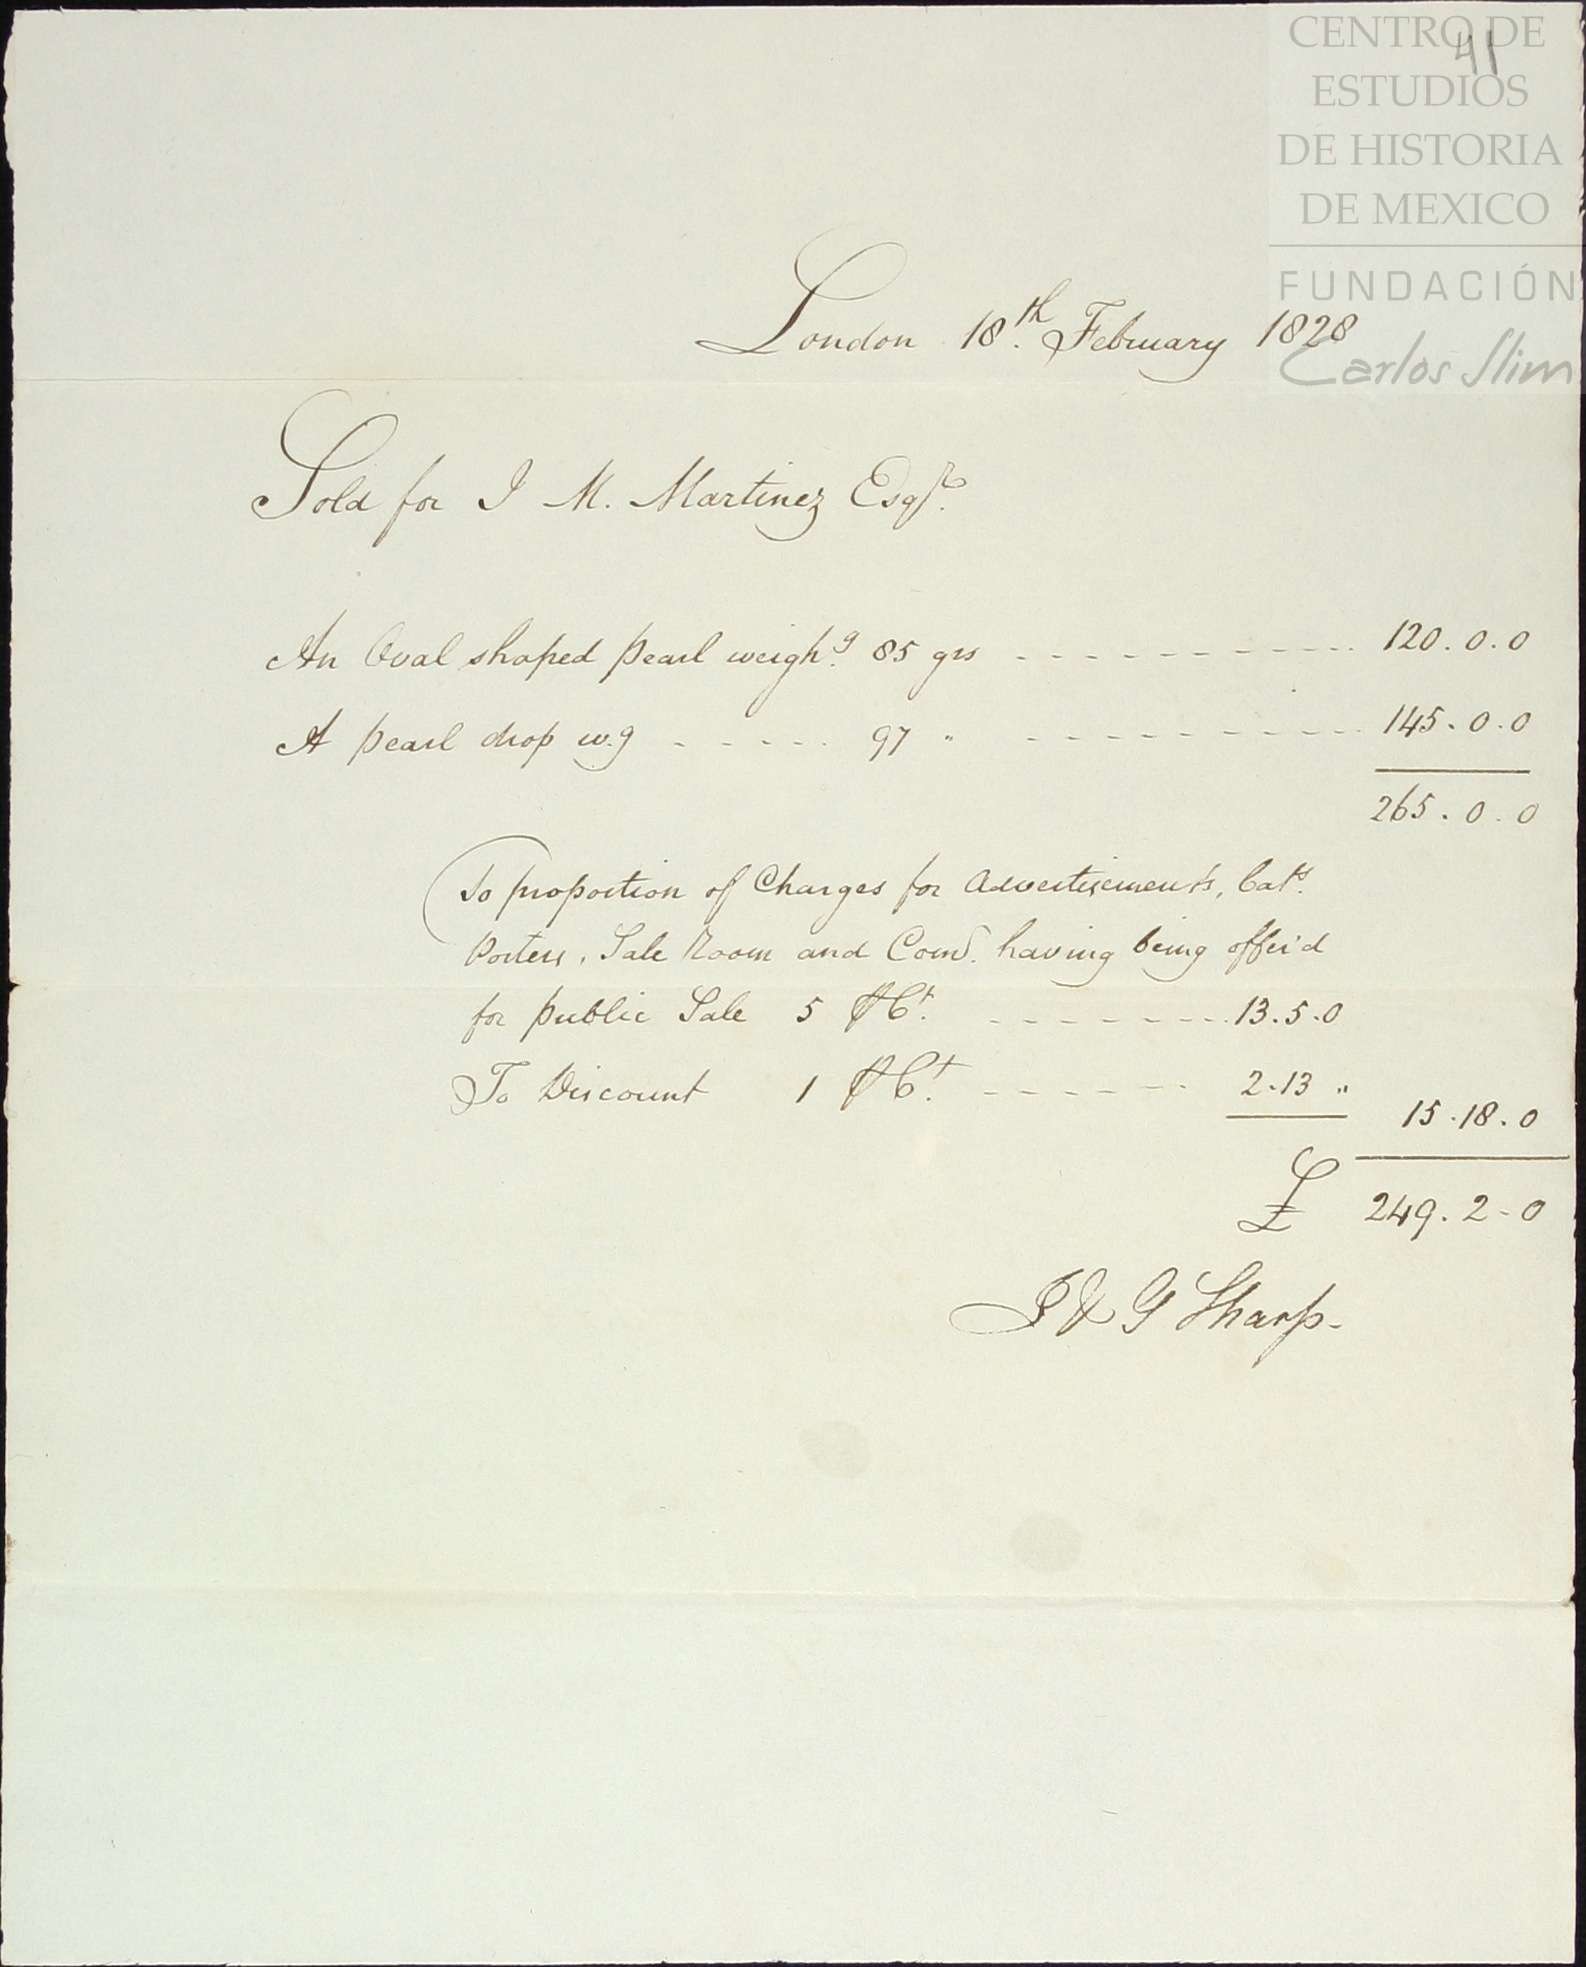 41
CENTRO DE
ESTUDIOS
DE HISTORIA
DE MEXICO
FUNDACIÓN
Carlos Slim
London 18th. February 1828
Sold for J M. Martinez Esqr.
An Oval shaped pearl weighg. 85 grs 120.0.0
A pearl drop w.g 97 " 145.0.0
265.0.0
To proportion of Charges for Advertisements, Cats.
Porters, Sale Room and Comn. having being offer'd
for public Sale 5 P Ct. 13.5.0
To Discount 1 P Ct. 2.13 "
15.18.0
£ 249.2.0
J & G Sharp.